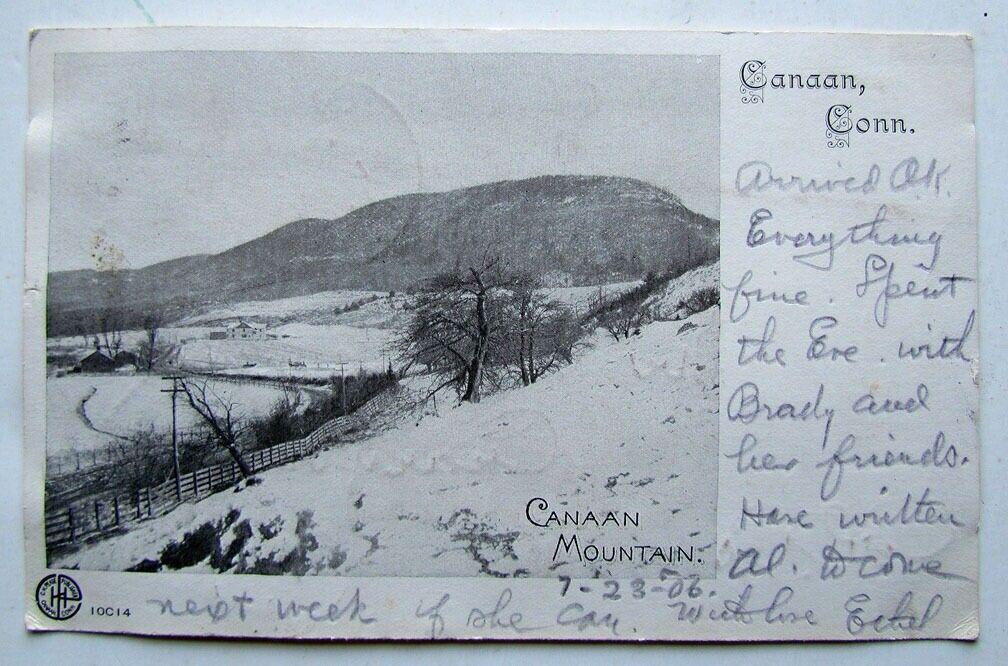 Canaan,
Conn.
Arrived OK.
Everything
fine. Spent
the Eve. with
Brady and
her friends.
Have written
Al. to come
next week if she can. With love Ethel
CANAAN
MOUNTAIN.
7-23-06.
10C14